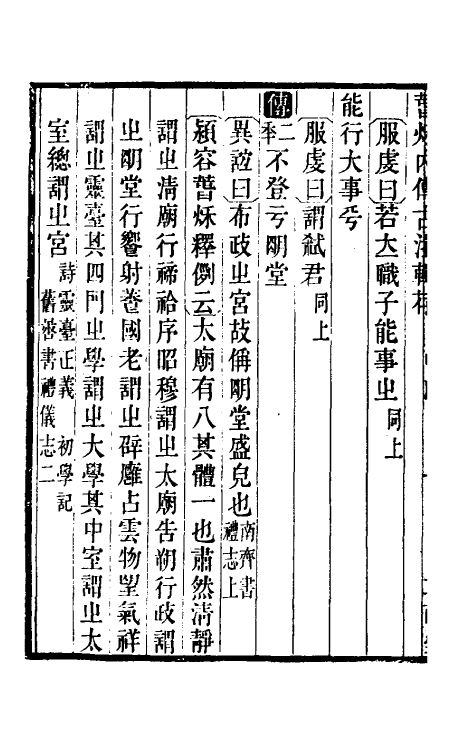 萅秌內傳古注輯存
服虔曰若立職子能事㞢同上
能行大事乎
服虔曰謂弑君同上
傳二年不登亏朙堂
異誼曰布政㞢宮故偁朙堂盛皃也南齊書禮志上
潁容萅秌釋例云太廟有八其體一也肅然清靜
謂㞢清廟行禘祫序昭穆謂㞢太廟告朔行政謂
㞢朙堂行饗射養國老謂㞢辟廱占雲物望氣祥
謂㞢靈臺其四門㞢學謂㞢大學其中室謂㞢太
室總謂㞢宮詩靈臺正義 初學記 舊唐書禮儀志二